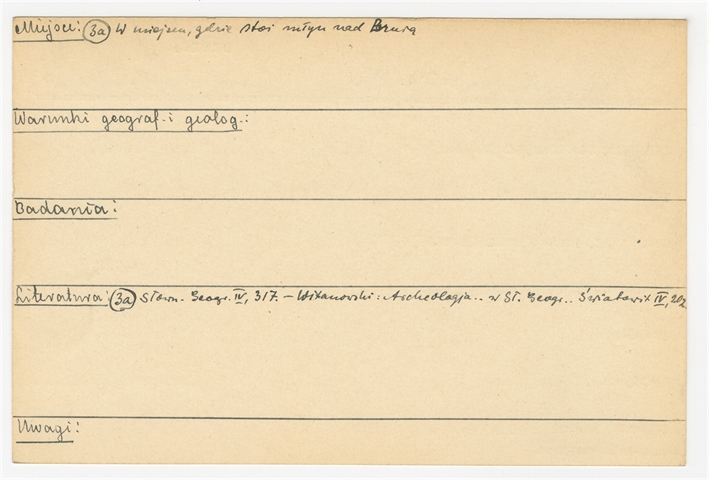 Miejsce: (3a) W miejscu, gdzie stoi młyn nad Bzurą
Warunki geograf. i geolog.:
Badania:
Literatura: (3a) Słown. Geogr. IV, 317. – Witanowski: Archeologja.. w Sł. Geogr.. Światowit IV, 202
Uwagi: